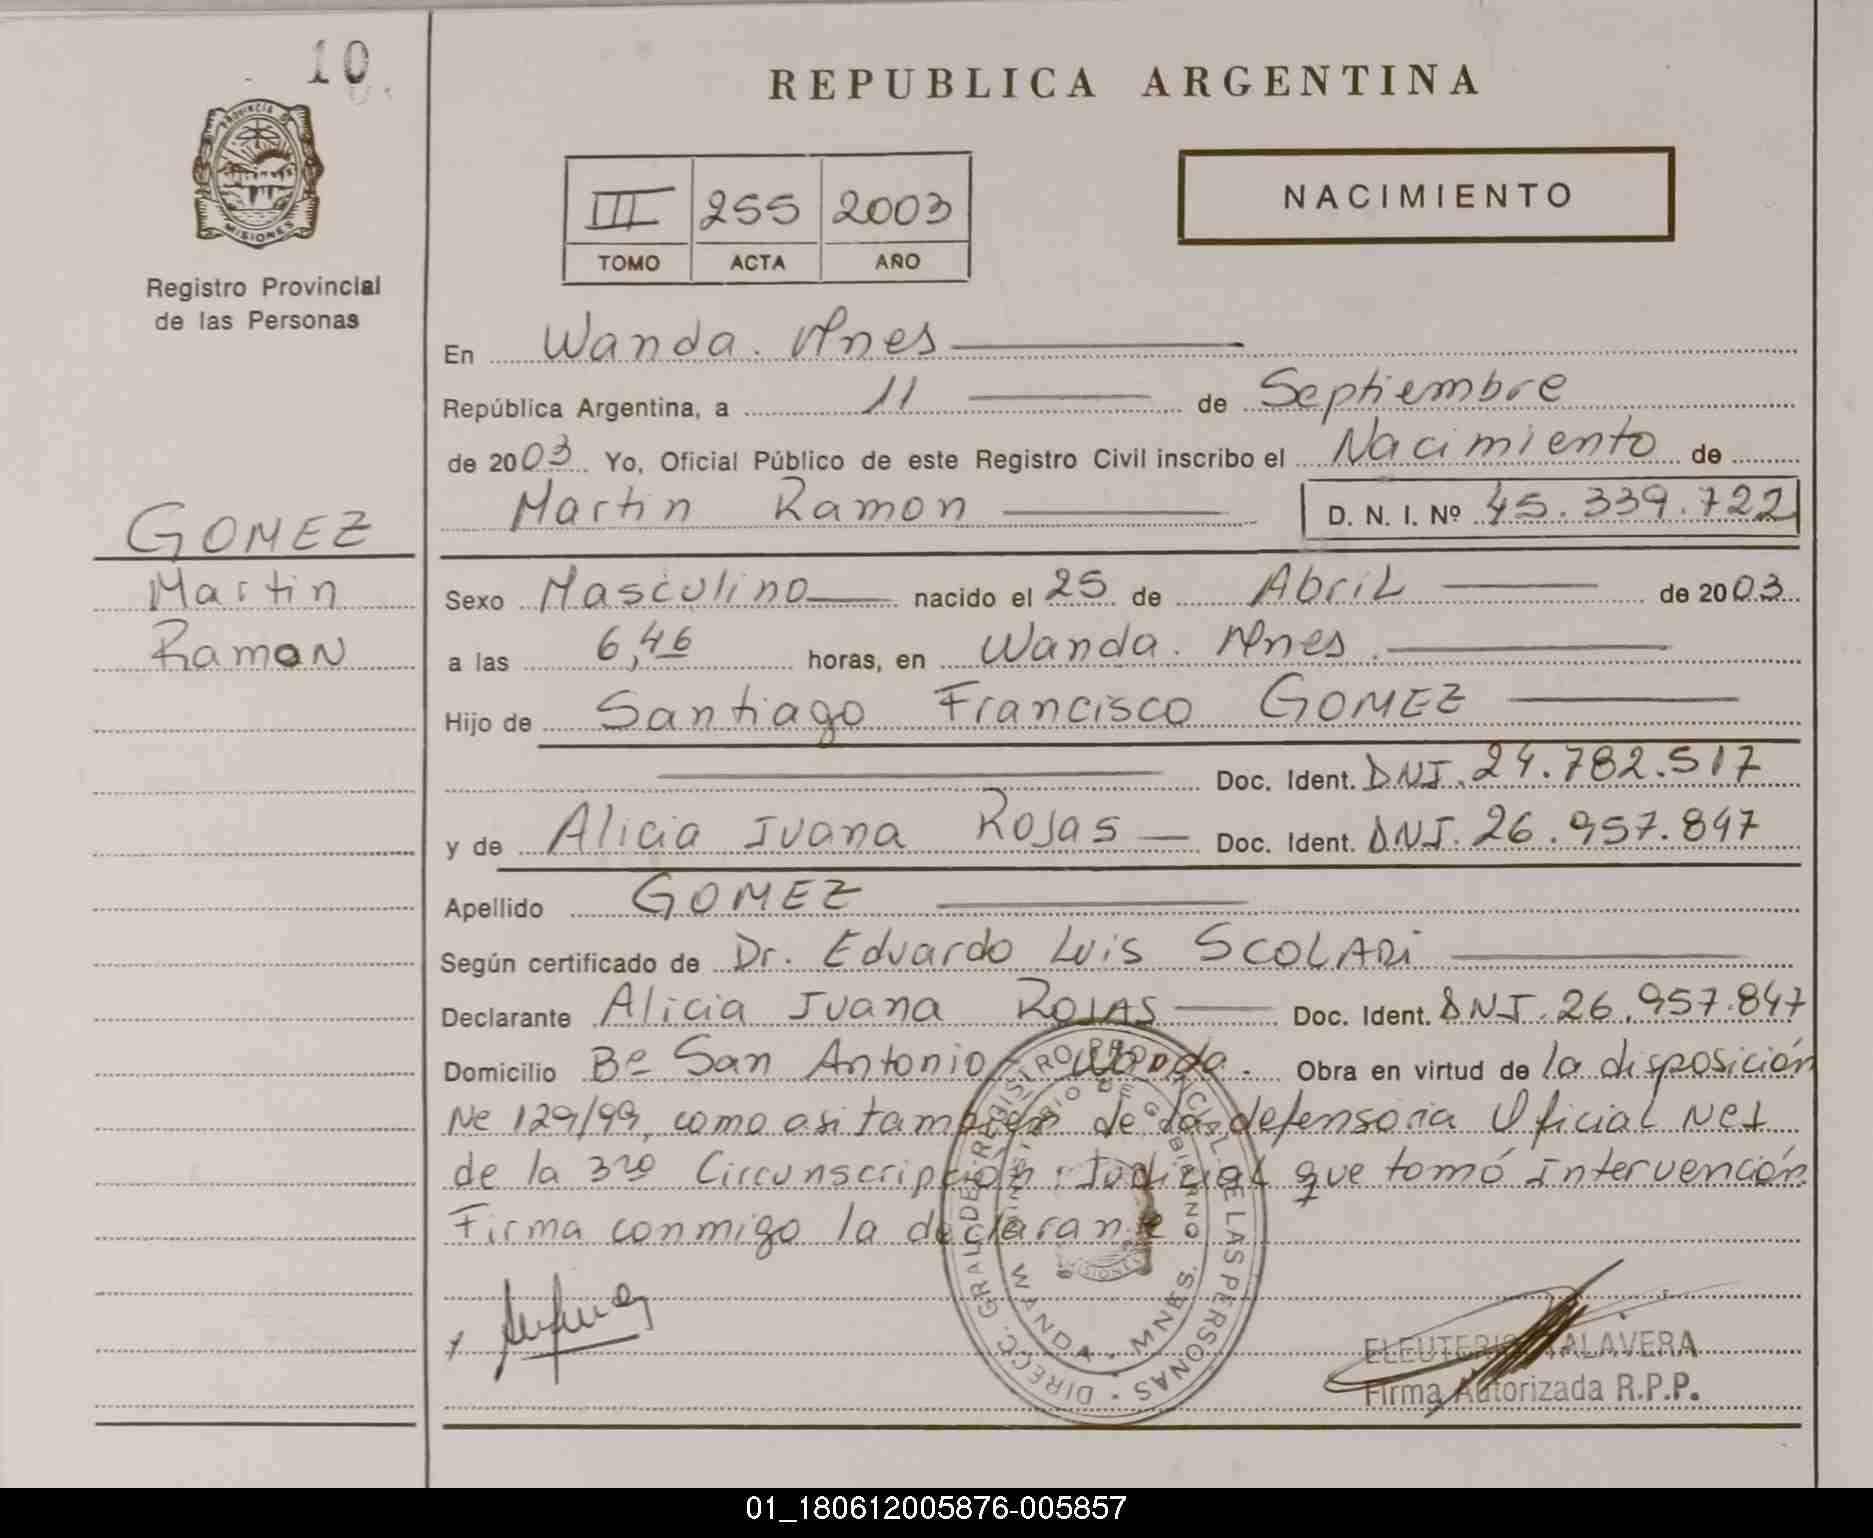 10
PROVINCIA D
MISIONES
Registro Provincial
de las Personas
GOMEZ
Martin
Ramon
REPUBLICA ARGENTINA
III 255 2003
TOMO ACTA AÑO
NACIMIENTO
En Wanda. Mnes
República Argentina, a 11 de Septiembre
de 2003 Yo, Oficial Público de este Registro Civil inscribo el Nacimiento de
Martin Ramon D. N. I. Nº 45.339.722
Sexo Masculino nacido el 25 de Abril de 2003
a las 6,46 horas, en Wanda. Mnes.
Hijo de Santiago Francisco GOMEZ
Doc. Ident. DNI. 24.782.517
y de Alicia Juana Rojas Doc. Ident. DNI. 26.957.847
Apellido GOMEZ
Según certificado de Dr. Eduardo Luis SCOLARI
Declarante Alicia Juana ROJAS Doc. Ident. DNI. 26.957.847
Domicilio Bº San Antonio - Wanda. Obra en virtud de la disposición
Nº 129/99, como asi tambien de la defensoria Oficial Nº1
de la 3ra Circunscripción Judicial que tomó intervención
Firma conmigo la declarante
DIRECC. GRAL. DE REGISTRO PROVINCIAL DE LAS PERSONAS
MINISTERIO DE GOBIERNO
WANDA - MNES.
MISIONES
ELEUTERIO TALAVERA
Firma Autorizada R.P.P.
01_180612005876-005857